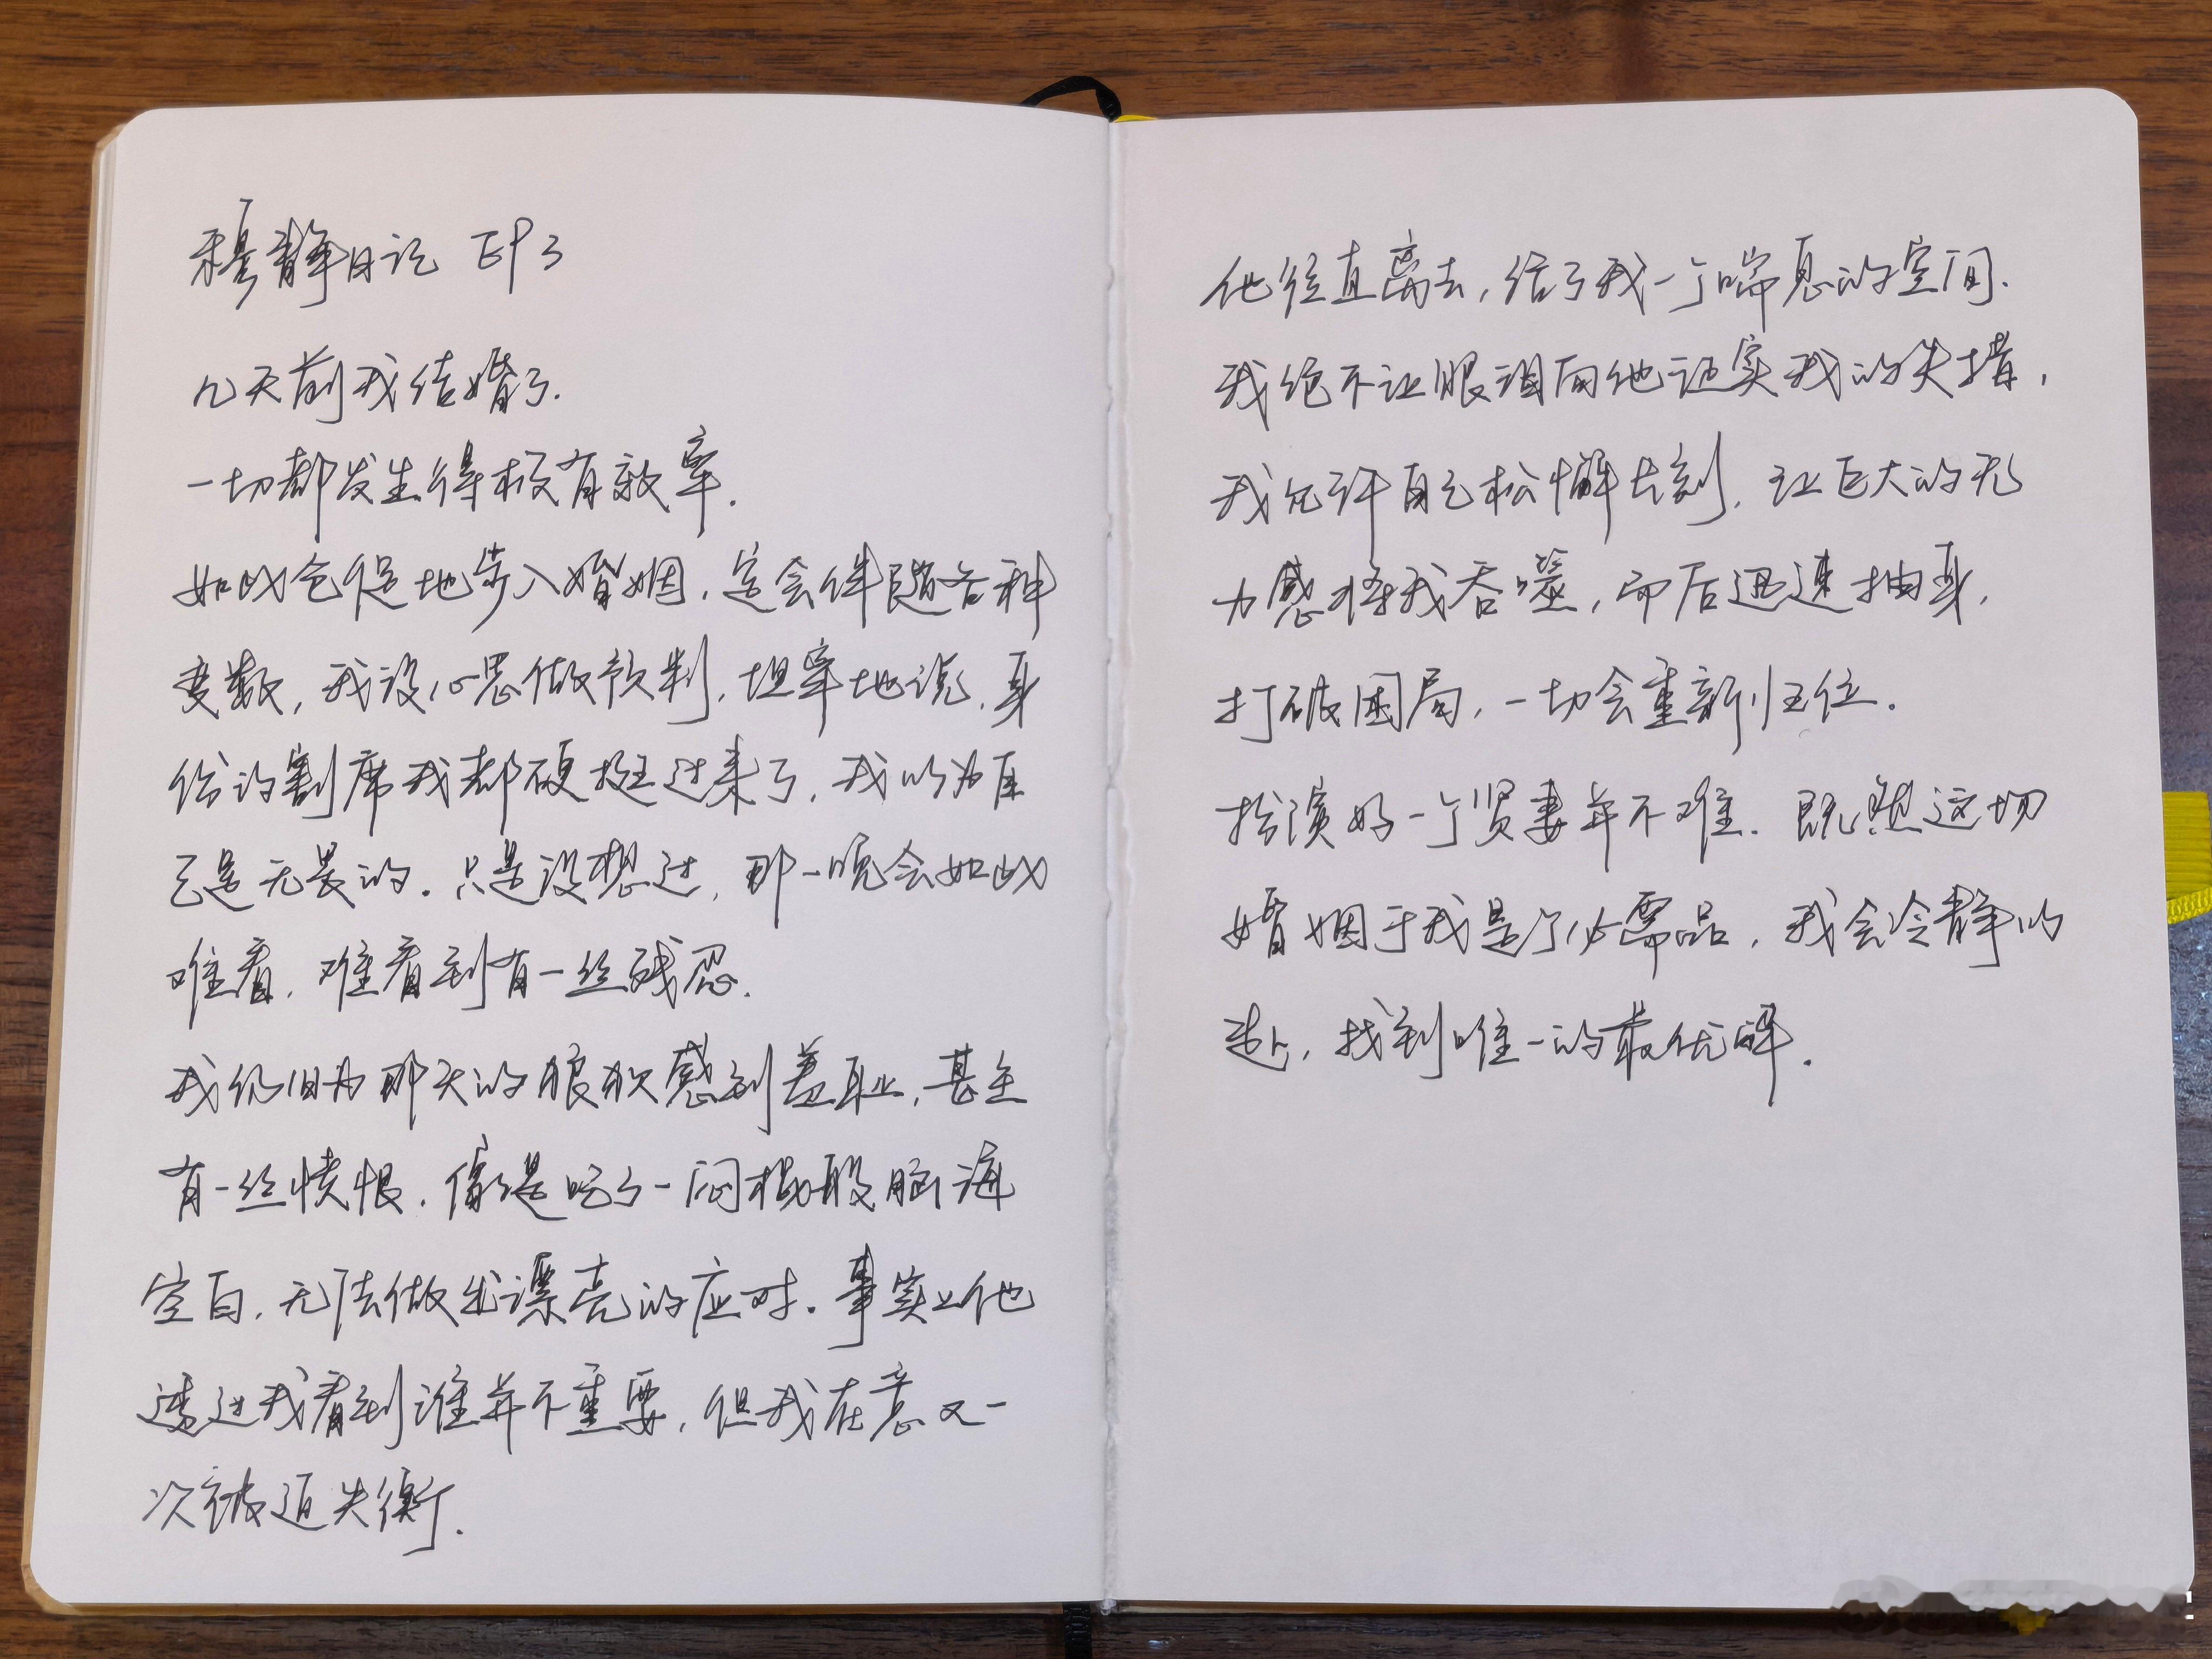 穆静日记 EP3
几天前我结婚了.
一切都发生得极有效率.
如此仓促地步入婚姻,定会伴随各种
变数,我没心思做预判,坦率地说,身
份的割席我都硬挺过来了,我以为自
己是无畏的.只是没想过,那一晚会如此
难看,难看到有一丝残忍.
我仍旧为那天的狼狈感到羞耻,甚至
有一丝愤恨.像是吃了一闷棍般脑海
空白,无法做出漂亮的应对.事实上他
透过我看到谁并不重要,但我在意又一
次被迫失衡.
他径直离去,给了我一个喘息的空间.
我绝不让眼泪向他证实我的失措,
我允许自己松懈片刻,让巨大的无
力感将我吞噬,而后迅速抽身,
打破困局,一切会重新归位.
扮演好一个贤妻并不难.既然这场
婚姻于我是个必需品,我会冷静的
赴,找到唯一的最优解.